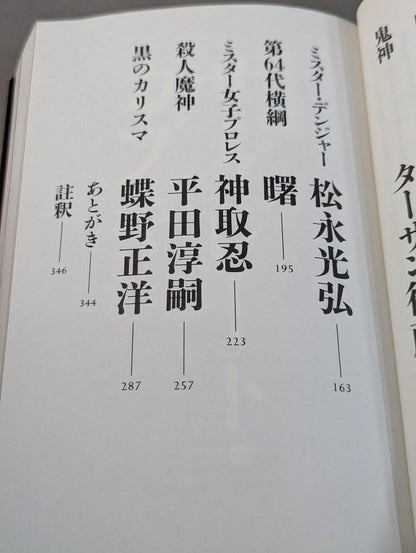 鬼神
ミスター・デンジャー 松永光弘 163
第64代横綱 曙 195
ミスター女子プロレス 神取忍 223
殺人魔神 平田淳嗣 257
黒のカリスマ 蝶野正洋 287
あとがき 344
註釈 346